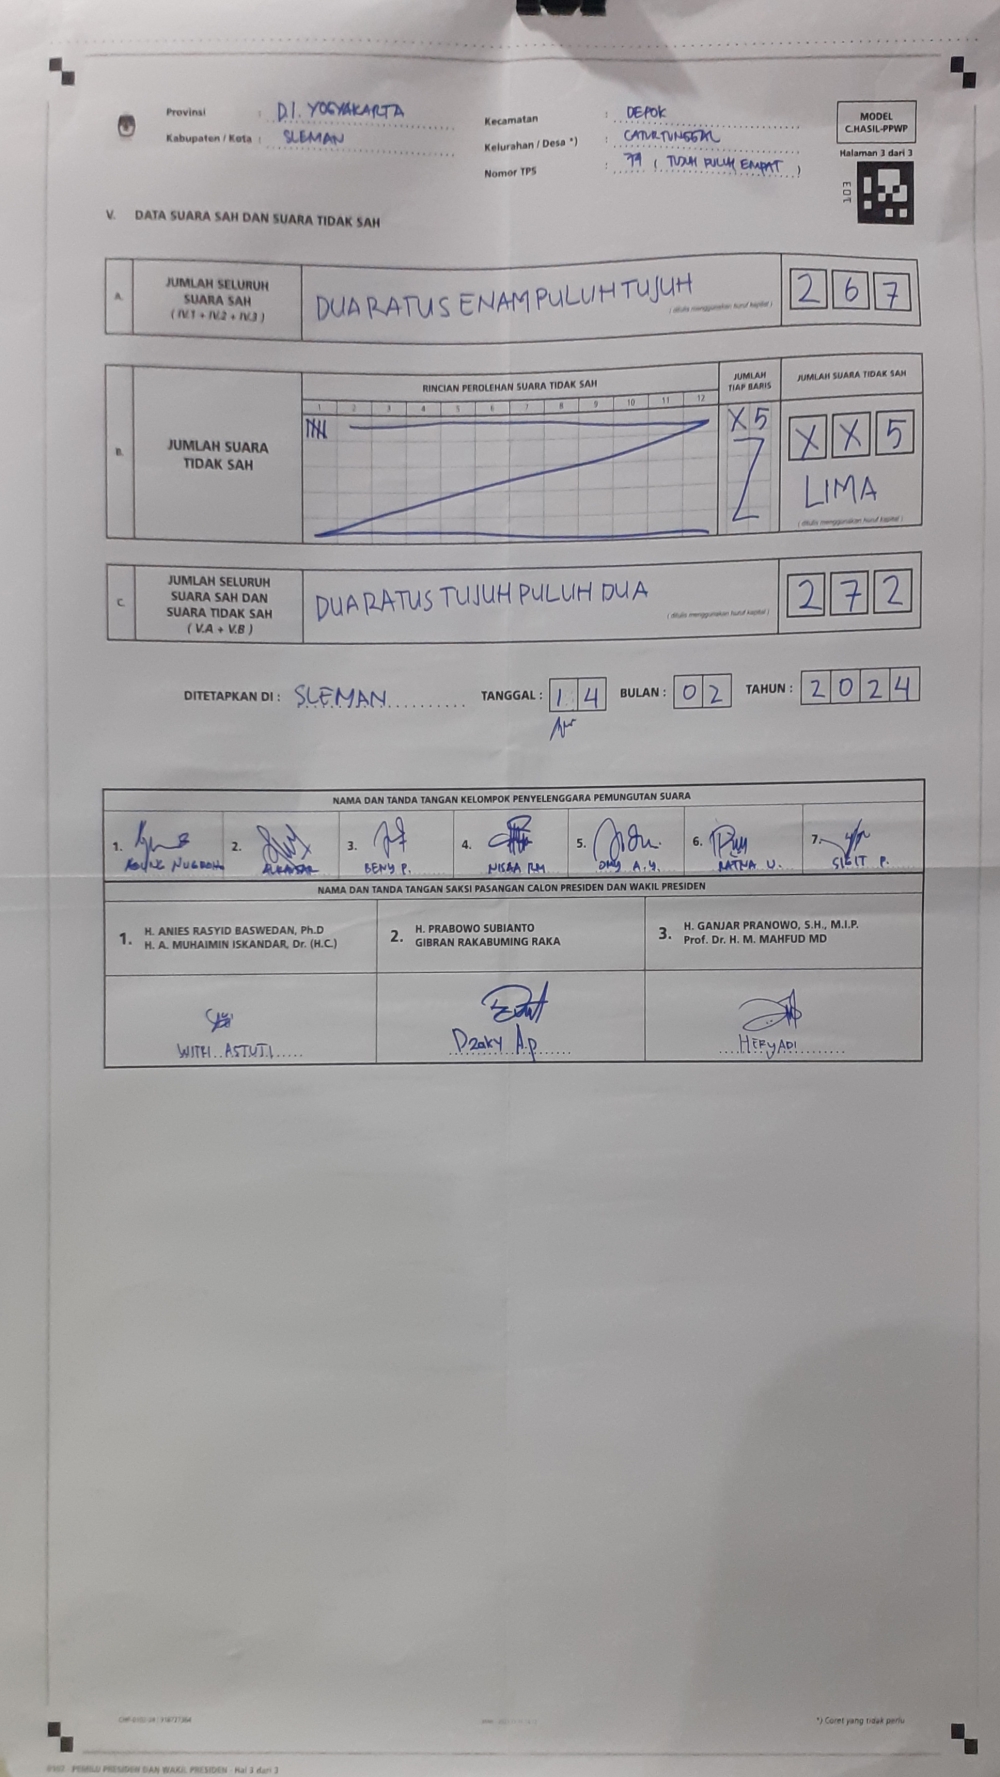 Provinsi : D.I. YOGYAKARTA
Kabupaten / Kota : SLEMAN
Kecamatan : DEPOK
Kelurahan / Desa *) : CATURTUNGGAL
Nomor TPS : 74 ( TUJUH PULUH EMPAT )
MODEL
C.HASIL-PPWP
Halaman 3 dari 3
V. DATA SUARA SAH DAN SUARA TIDAK SAH
A. JUMLAH SELURUH
SUARA SAH
( IV.1 + IV.2 + IV.3 )
DUA RATUS ENAM PULUH TUJUH
(ditulis menggunakan huruf kapital)
2 6 7
B. JUMLAH SUARA
TIDAK SAH
RINCIAN PEROLEHAN SUARA TIDAK SAH
1 2 3 4 5 6 7 8 9 10 11 12
JUMLAH
TIAP BARIS
X 5
JUMLAH SUARA TIDAK SAH
X X 5
LIMA
(ditulis menggunakan huruf kapital)
C. JUMLAH SELURUH
SUARA SAH DAN
SUARA TIDAK SAH
( V.A + V.B )
DUA RATUS TUJUH PULUH DUA
(ditulis menggunakan huruf kapital)
2 7 2
DITETAPKAN DI : SLEMAN TANGGAL : 14 BULAN : 02 TAHUN : 2024
NAMA DAN TANDA TANGAN KELOMPOK PENYELENGGARA PEMUNGUTAN SUARA
1. 2. 3. 4. 5. 6. 7.
BENY P. RATNA U. SIGIT P.
NAMA DAN TANDA TANGAN SAKSI PASANGAN CALON PRESIDEN DAN WAKIL PRESIDEN
1. H. ANIES RASYID BASWEDAN, Ph.D
H. A. MUHAIMIN ISKANDAR, Dr. (H.C.)
2. H. PRABOWO SUBIANTO
GIBRAN RAKABUMING RAKA
3. H. GANJAR PRANOWO, S.H., M.I.P.
Prof. Dr. H. M. MAHFUD MD
WITRI ASTUTI
Dzaky A.P
HERYADI
*) Coret yang tidak perlu
PEMILU PRESIDEN DAN WAKIL PRESIDEN - Hal 3 dari 3